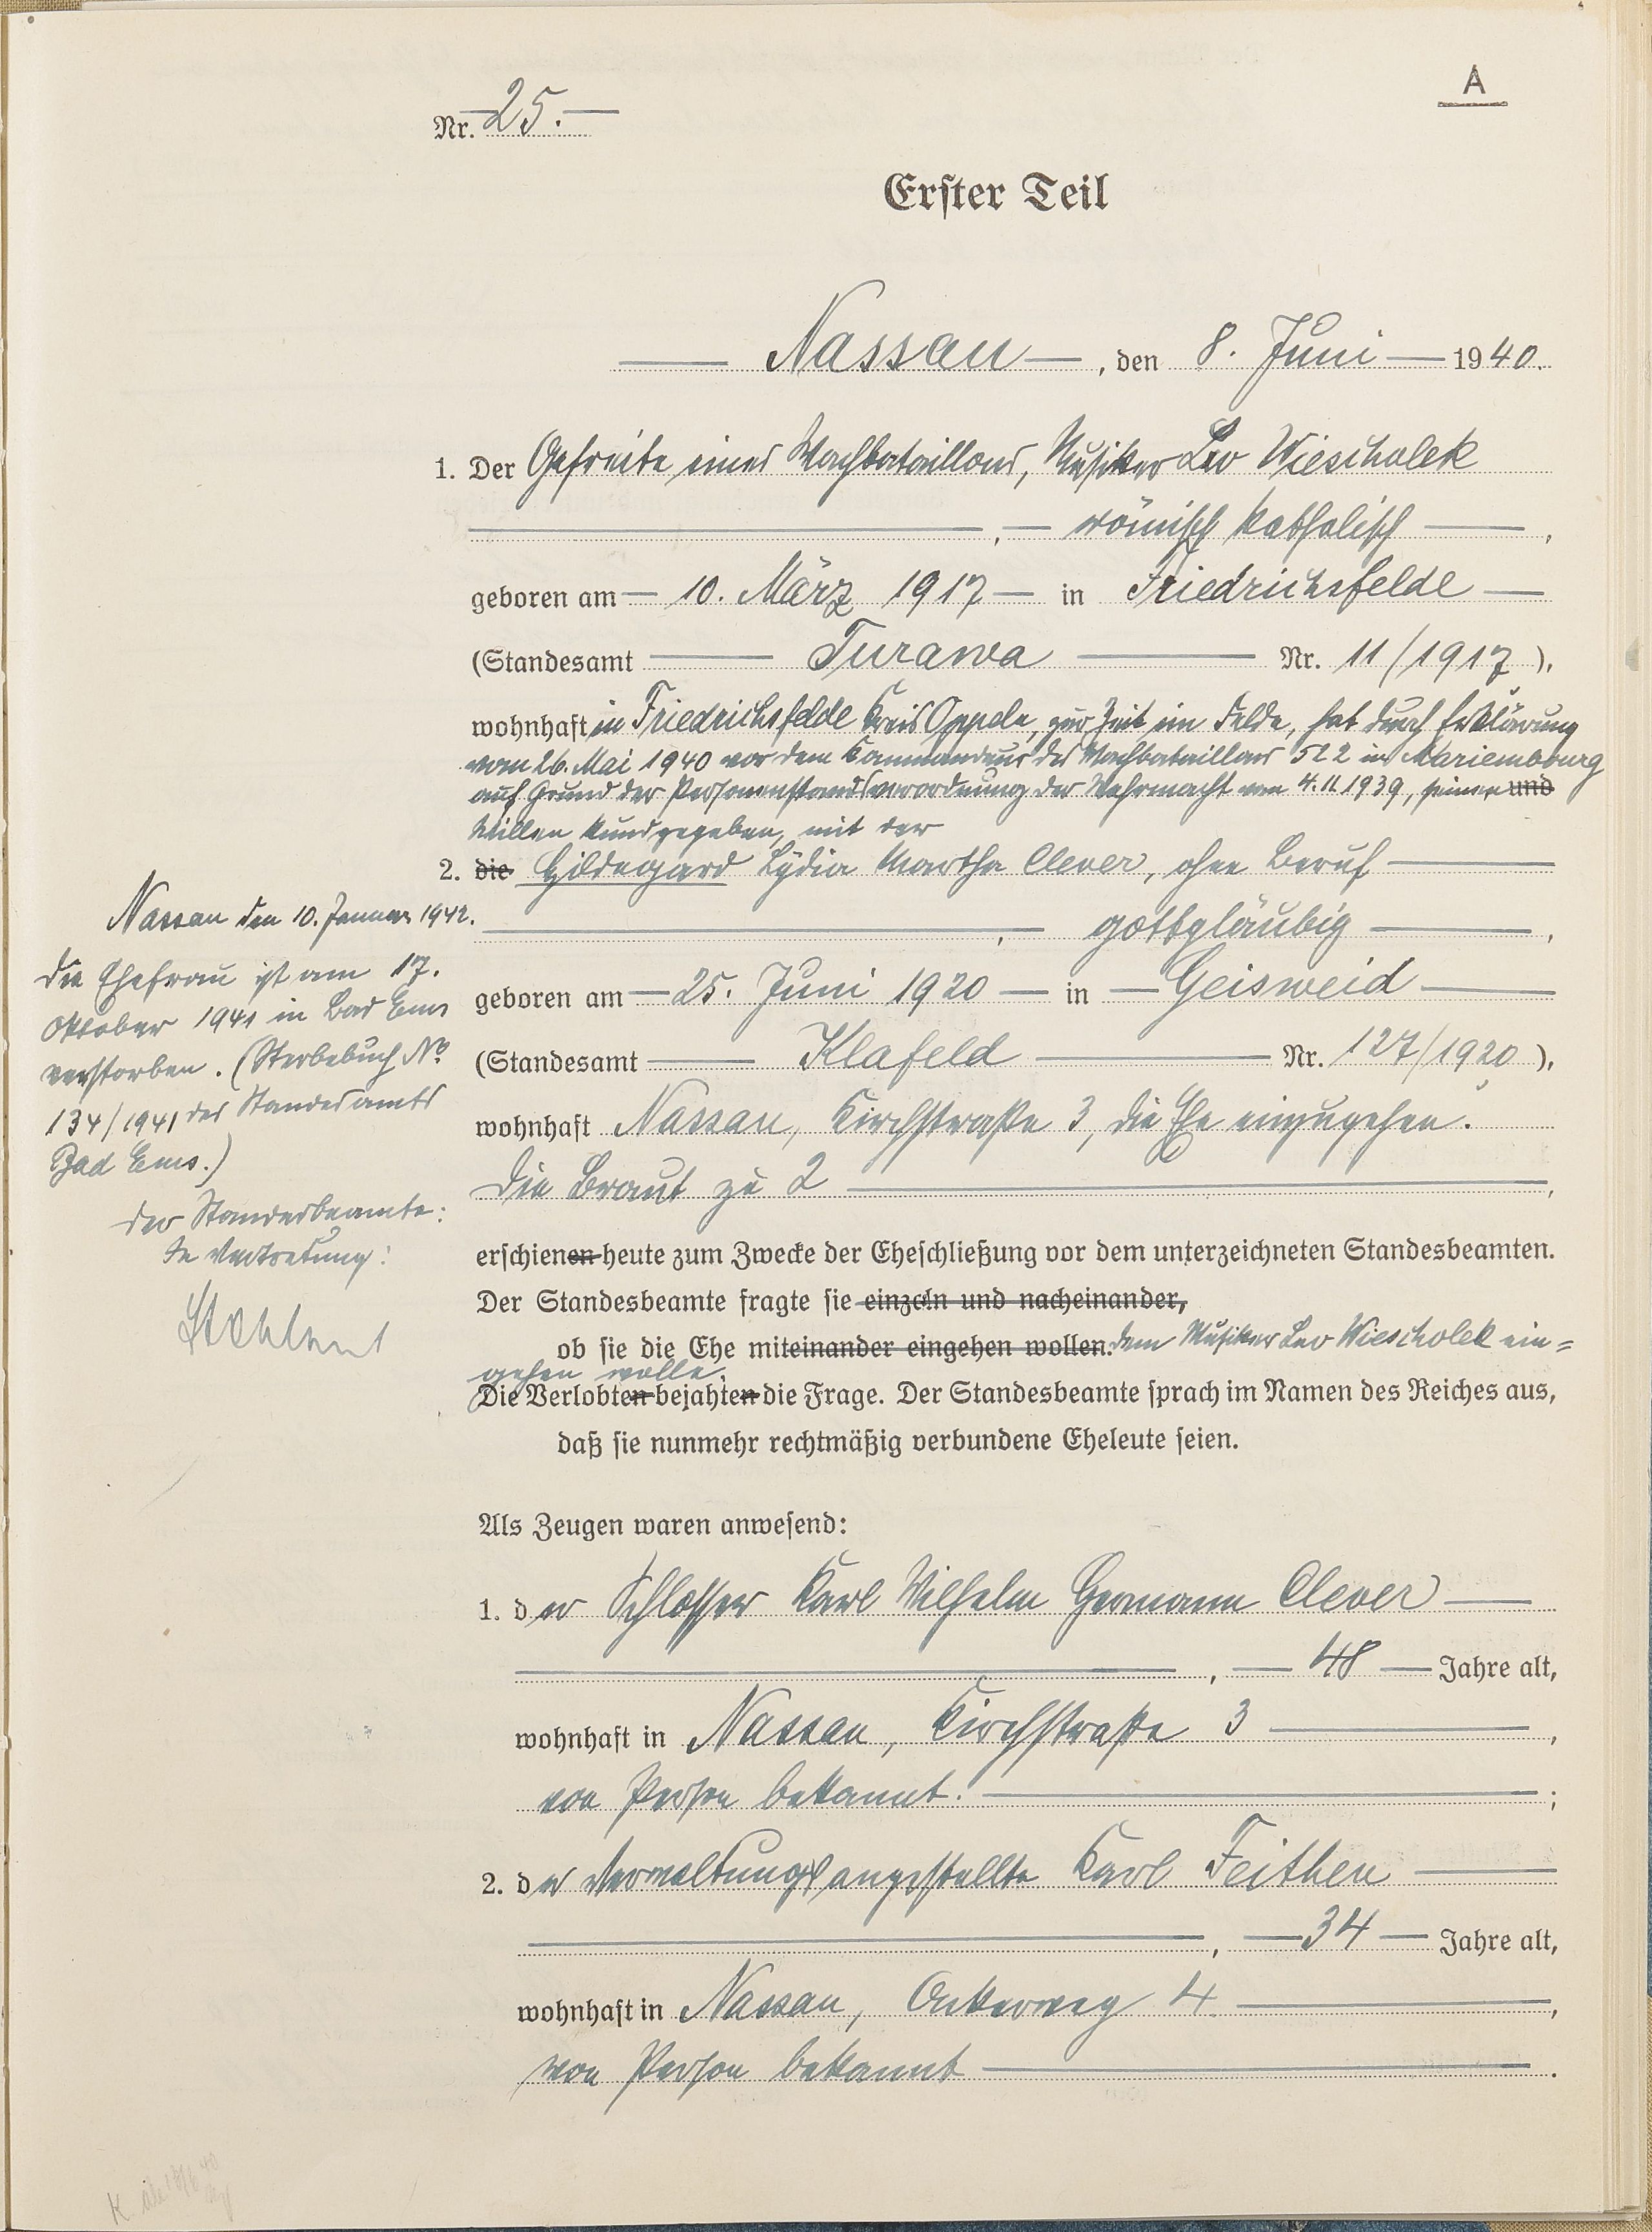 A
Nr. 25.
Erster Teil
Nassau, den 8. Juni 1940.
1. Der Gefreite eines Wachbataillons, Musiker Leo Wiescholek
, römisch katholisch,
geboren am 10. März 1917 in Friedrichsfelde
(Standesamt Turawa Nr. 11/1917),
wohnhaft in Friedrichsfelde Kreis Oppeln, zur Zeit im Felde, hat durch Erklärung
vom 26. Mai 1940 vor dem Kommandeur des Wachbataillons 522 in Mariembourg
auf Grund der Personenstandsverordnung der Wehrmacht vom 4.11.1939, seinen und
Willen kundgegeben, mit der
2. die Hildegard Lydia Martha Clever, ohne Beruf
, gottgläubig,
geboren am 25. Juni 1920 in Geisweid
(Standesamt Klafeld Nr. 127/1920),
wohnhaft Nassau, Kirchstraße 3, die Ehe einzugehen.
Die Braut zu 2,
erschienen heute zum Zwecke der Eheschließung vor dem unterzeichneten Standesbeamten.
Der Standesbeamte fragte sie einzeln und nacheinander,
ob sie die Ehe miteinander eingehen wollen. dem Musiker Leo Wiescholek ein=
gehen wolle.
Die Verlobten bejahten die Frage. Der Standesbeamte sprach im Namen des Reiches aus,
daß sie nunmehr rechtmäßig verbundene Eheleute seien.
Nassau den 10. Januar 1942.
Die Ehefrau ist am 17.
Oktober 1941 in Bad Ems
verstorben. (Sterbebuch No
134/1941 des Standesamts
Bad Ems.)
Der Standesbeamte:
In Vertretung:
Als Zeugen waren anwesend:
1. der Schlosser Karl Wilhelm Hermann Clever
, 48 Jahre alt,
wohnhaft in Nassau, Kirchstraße 3,
von Person bekannt.;
2. der Verwaltungsangestellte Karl Feithen
, 34 Jahre alt,
wohnhaft in Nassau, 4,
von Person bekannt.